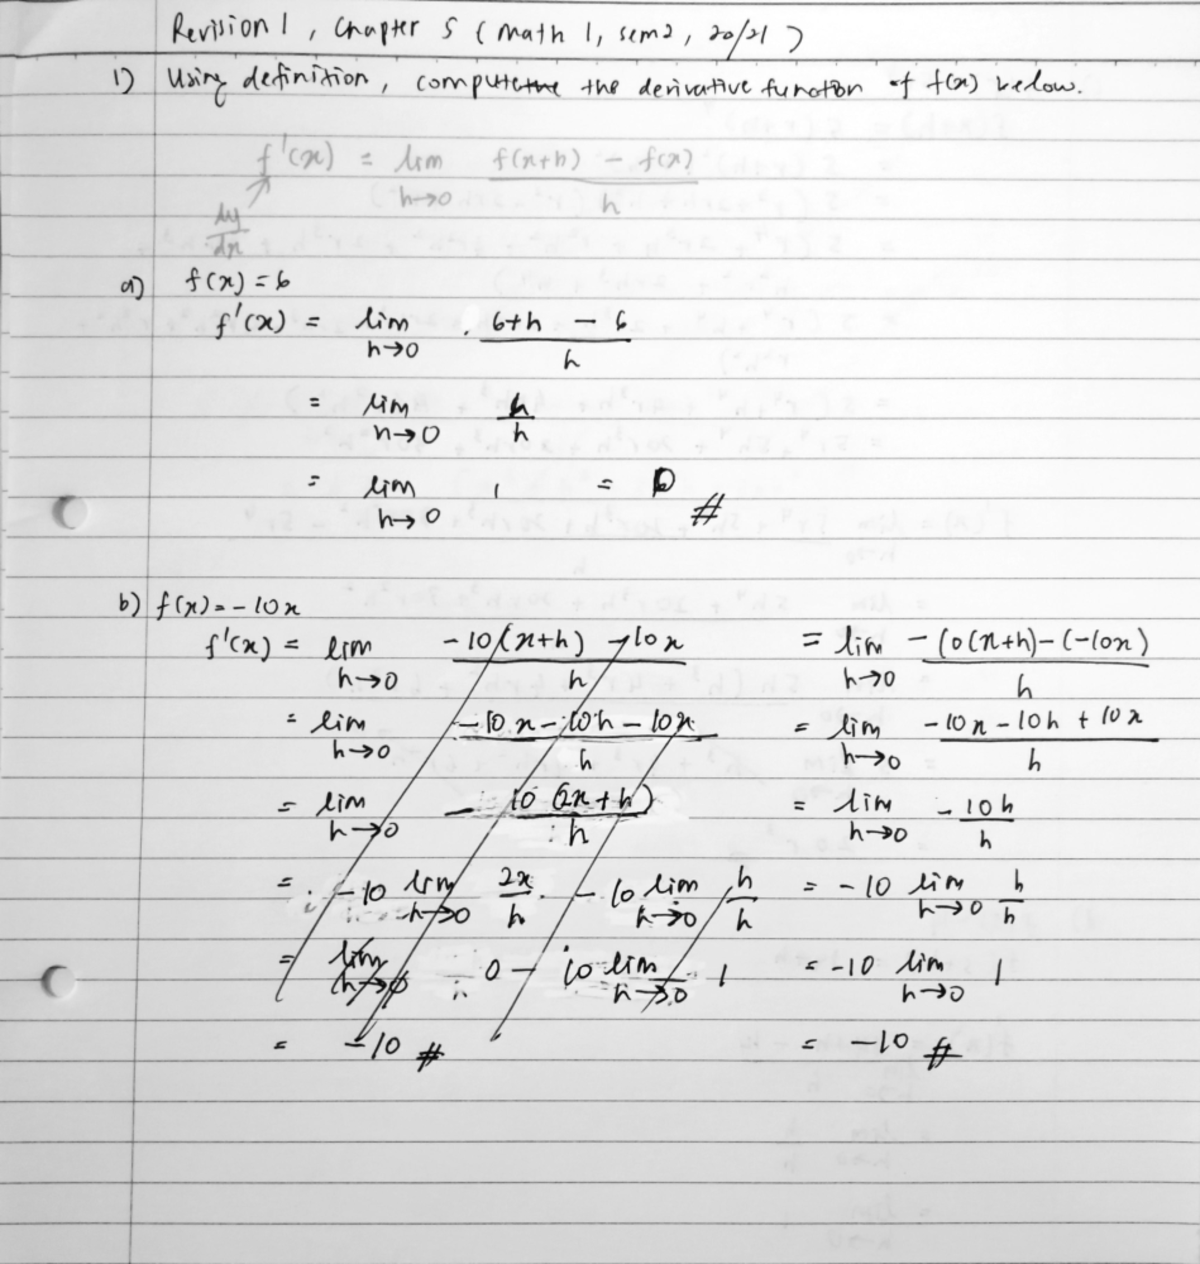 Revision 1, Chapter 5 (Math 1, sem 2, 20/21)
1) Using definition, compute the the derivative function of f(x) below.
f'(x) = lim h→0 f(x+h) - f(x) / h
dy/dx
a) f(x) = 6
f'(x) = lim h→0 6+h - 6 / h
= lim h→0 h/h
= lim h→0 1 = 0 #
b) f(x) = -10x
f'(x) = lim h→0 -10(x+h) - 10x / h = lim h→0 -10(x+h)-(-10x) / h
= lim h→0 -10x - 10h - 10x / h = lim h→0 -10x - 10h + 10x / h
= lim h→0 - 10(2x+h) / h = lim h→0 -10h / h
= -10 lim h→0 2x/h - 10 lim h→0 h/h = -10 lim h→0 h/h
= lim h→0 0 - 10 lim h→0 1 = -10 lim h→0 1
= -10 # = -10 #